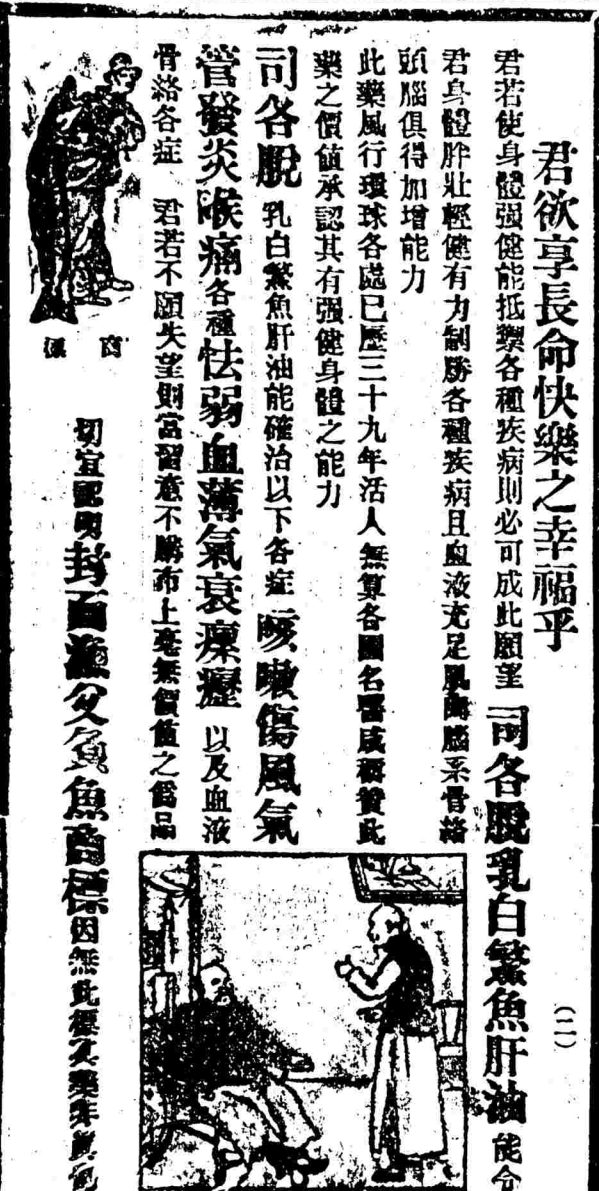 君欲享長命快樂之幸福乎
(二)
君若使身體强健能抵禦各種疾病則必可成此願望 司各脫乳白鰵魚肝油能令
君身體胖壯輕健有力制勝各種疾病且血液充足肌 腦系骨絡
頭腦俱得加增能力
此藥風行環球各處已歷三十九年活人無算各國名醫咸稱贊此
藥之價値承認其有强健身體之能力
司各脫乳白鰵魚肝油能確治以下各症 咳嗽傷風氣
管發炎喉痛各種怯弱血薄氣衰瘰癧以及血液
骨絡各症 君若不願失望則當留意不購市上毫無價值之僞品
商標
切宜認明封面漁父負魚商標因無此標之藥非眞也